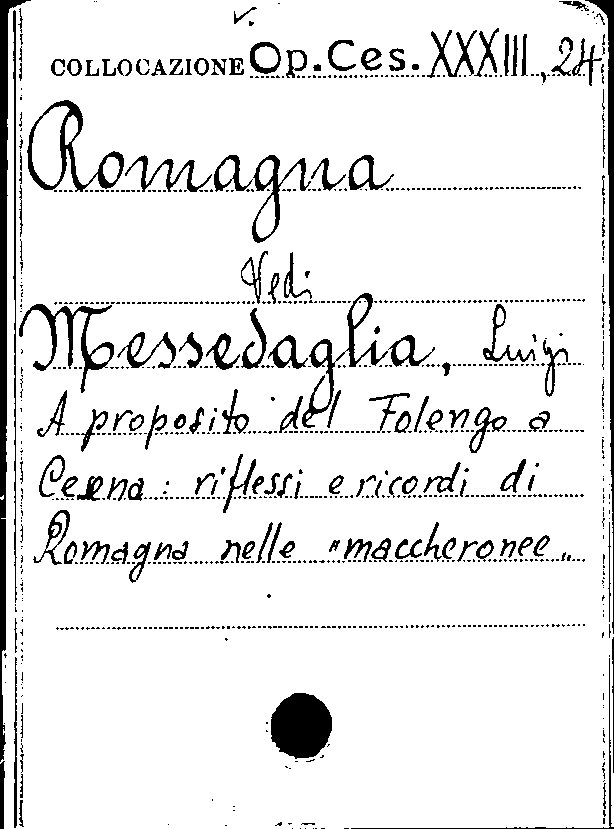 v.
COLLOCAZIONE Op.Ces. XXXIII, 24
Romagna
Vedi
Messedaglia, Luigi
A proposito del Folengo a
Cesena: riflessi e ricordi di
Romagna nelle "maccheronee„